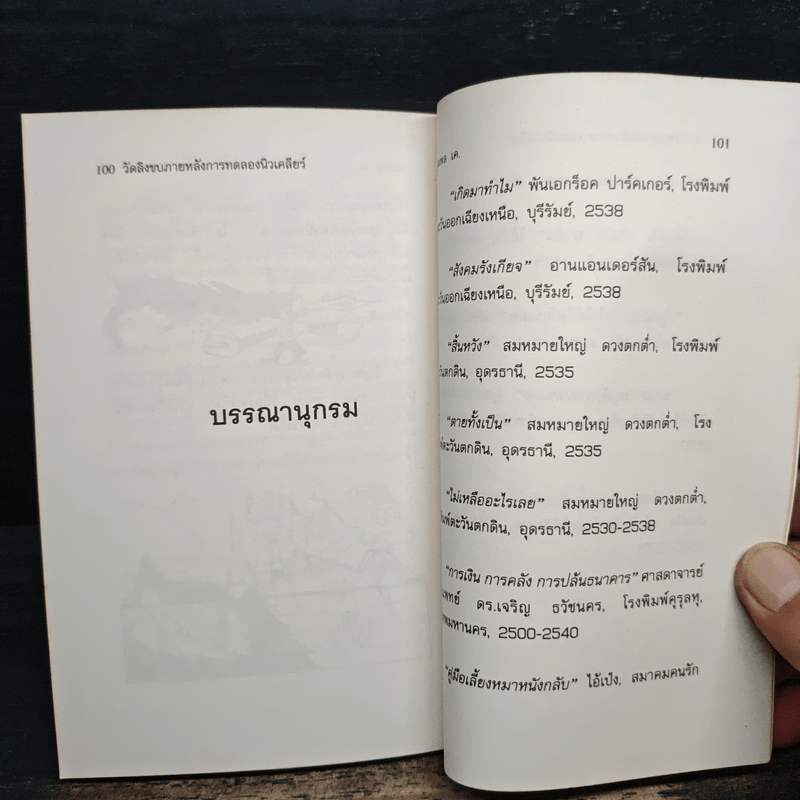 100 วัดลิงขบภายหลังการทดลองนิวเคลียร์
บรรณานุกรม
101
เค.
"เกิดมาทำไม" พันเอกร็อค ปาร์คเกอร์, โรงพิมพ์
ะวันออกเฉียงเหนือ, บุรีรัมย์, 2538
"สังคมรังเกียจ" อานแอนเดอร์สัน, โรงพิมพ์
ะวันออกเฉียงเหนือ, บุรีรัมย์, 2538
"สิ้นหวัง" สมหมายใหญ่ ดวงตกต่ำ, โรงพิมพ์
ะวันตกดิน, อุดรธานี, 2535
"ตายทั้งเป็น" สมหมายใหญ่ ดวงตกต่ำ, โรง
์ตะวันตกดิน, อุดรธานี, 2535
"ไม่เหลืออะไรเลย" สมหมายใหญ่ ดวงตกต่ำ,
มพ์ตะวันตกดิน, อุดรธานี, 2530-2538
"การเงิน การคลัง การปล้นธนาคาร" ศาสดาจารย์
พทย์ ดร.เจริญ ธวัชนคร, โรงพิมพ์คุรุลหุ,
พมหานคร, 2500-2540
"คู่มือเลี้ยงหมาหนังกลับ" ไอ้เป๋ง, สมาคมคนรัก